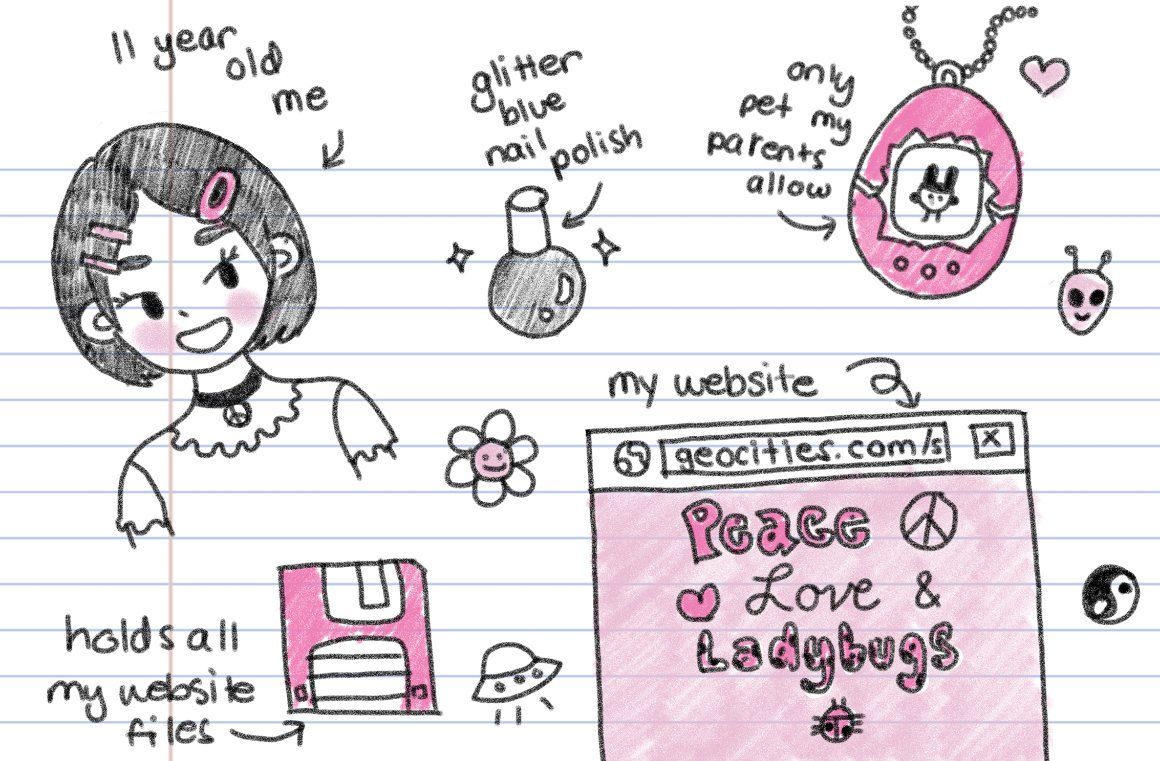 11 year
old
me
glitter
blue
nail polish
only
pet my
parents
allow
my website
geocities.com/s
x
Peace
Love &
Ladybugs
holds all
my website
files